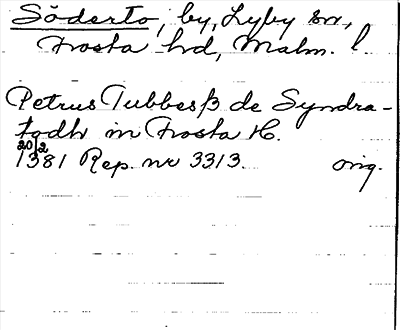 Söderto, by, Lyby sn,
Frosta hd, Malm. l.
Petrus Tubbesß de Syndra-
todh in Frosta H.
20/2
1381 Rep. nr 3313. orig.